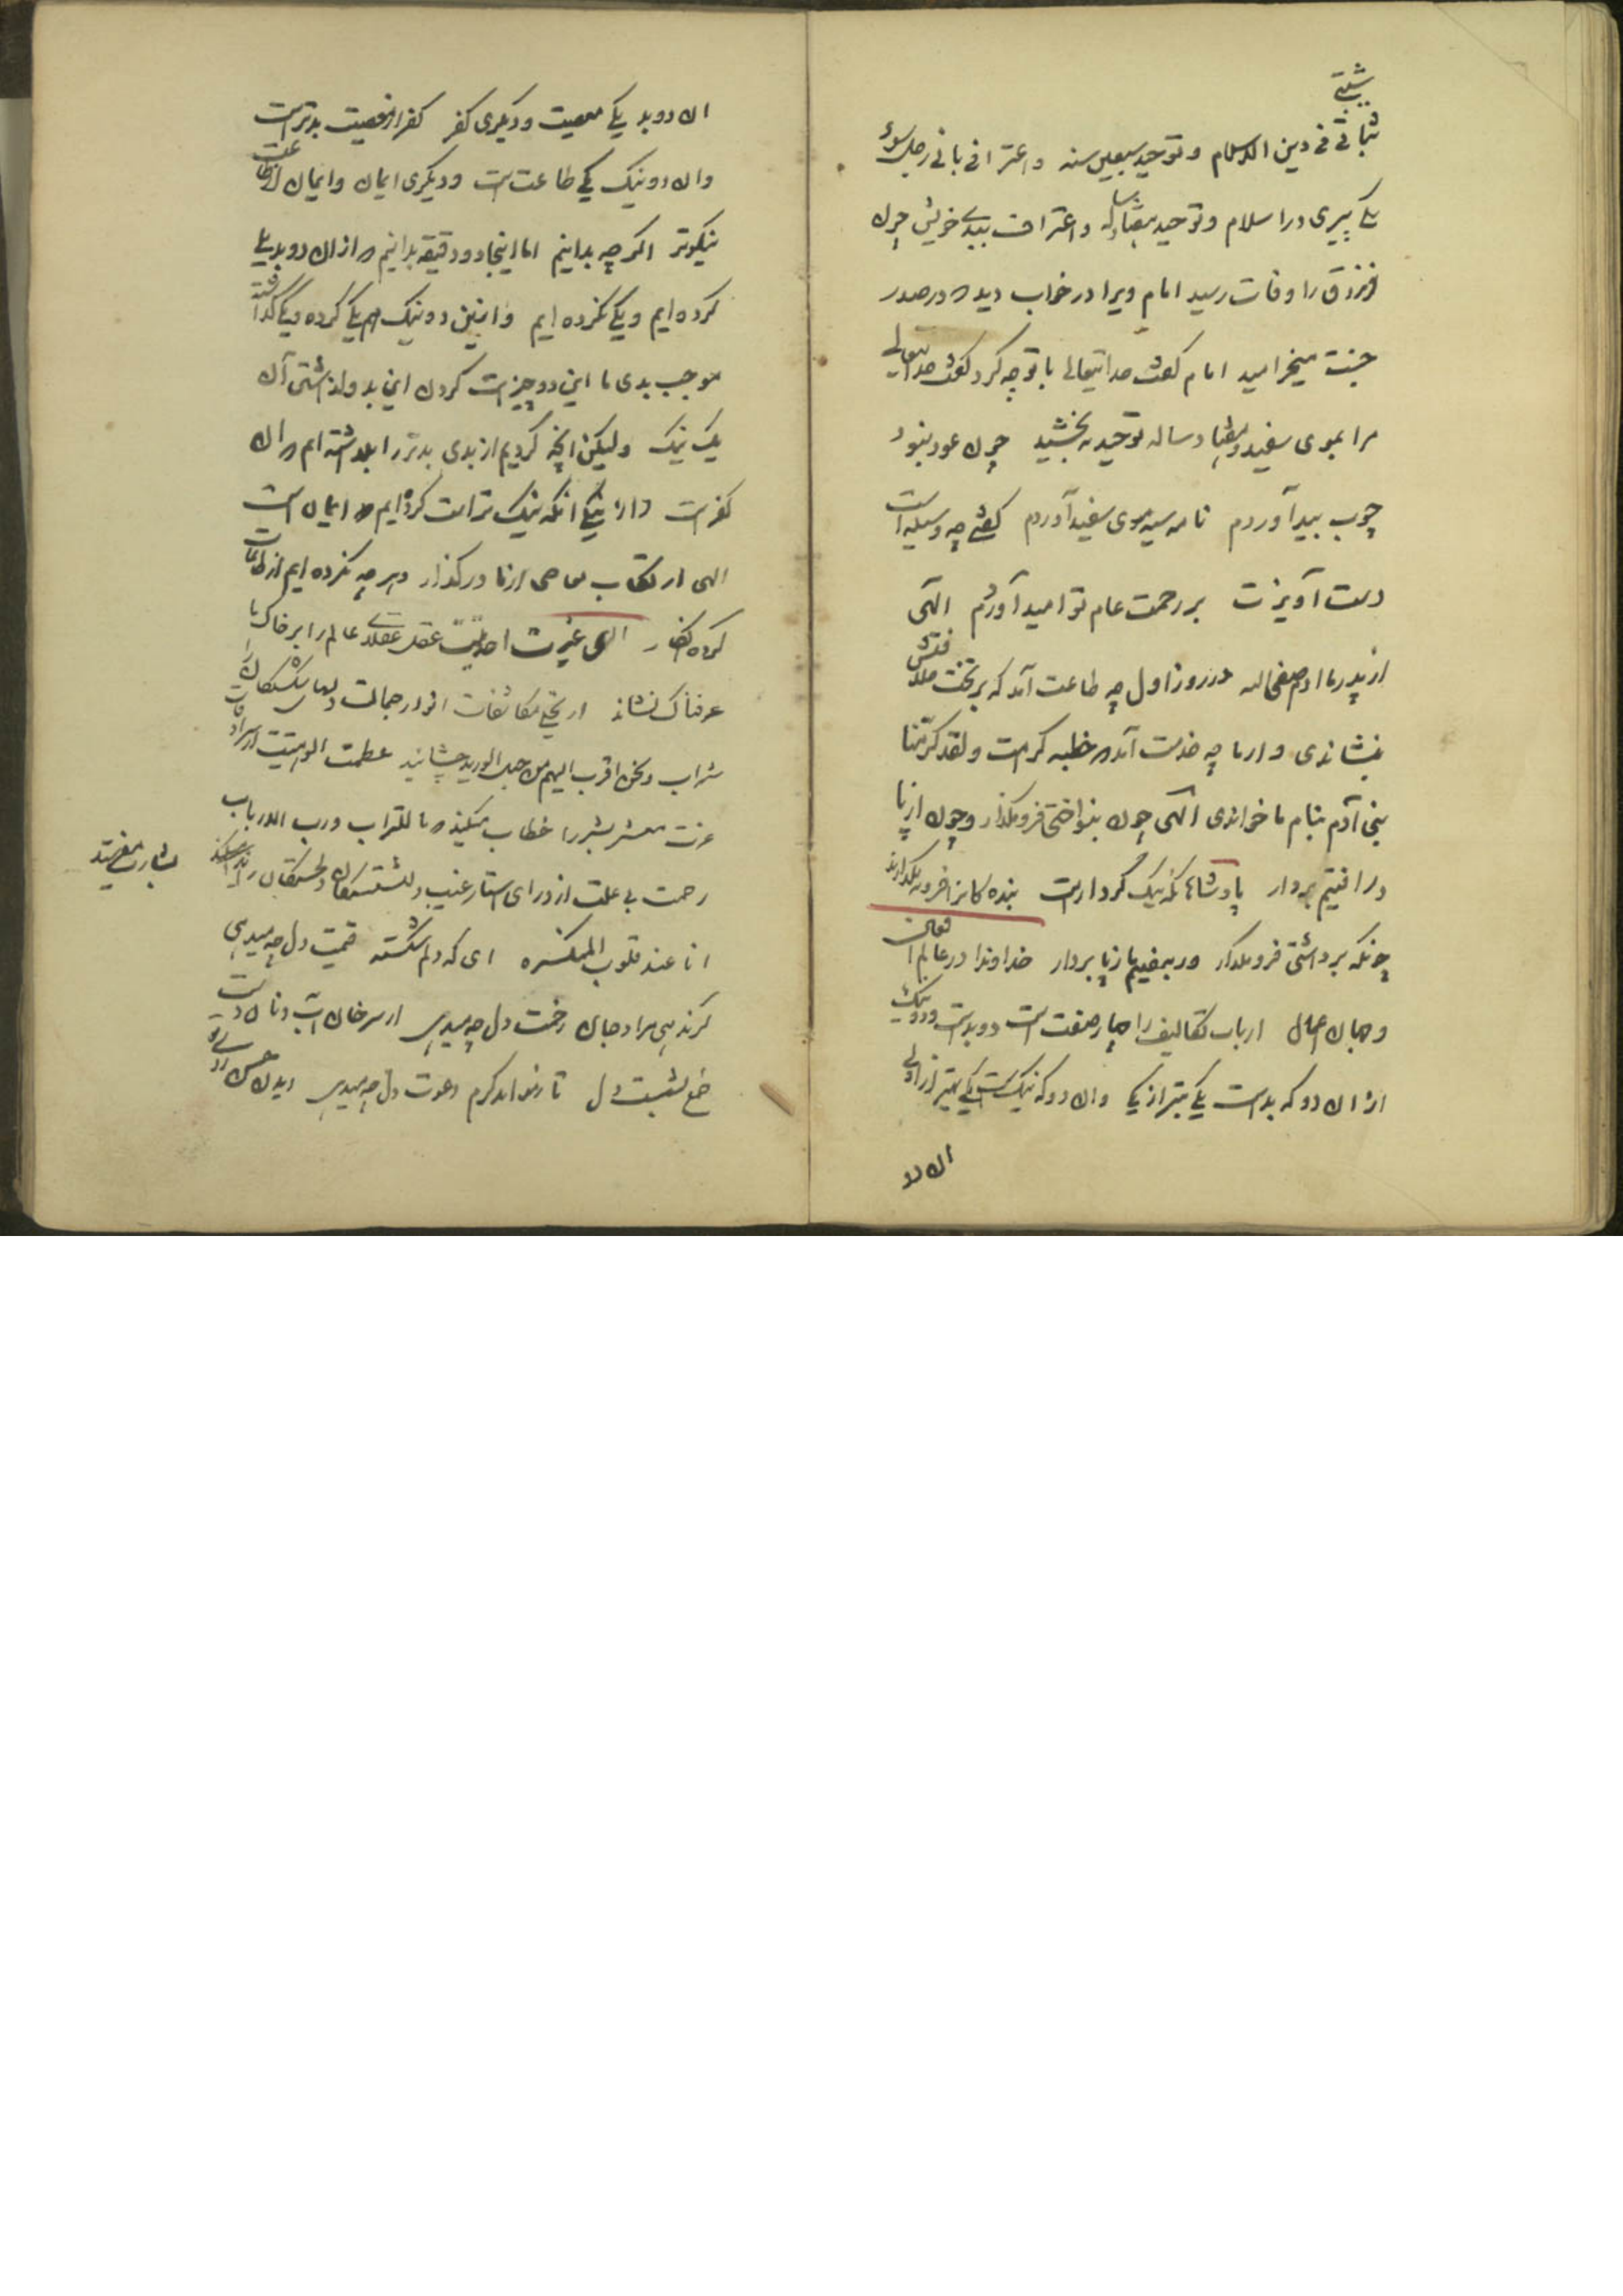 شیبتی
ثباتی فی دین الاسلام و توحید سبعین سنه و اعترافی بانی رجل سوء
یکی پیری در اسلام و توحید هفتاد ساله و اعتراف ببدی خویش چون
فرزدق را وفات رسید امام ویرا در خواب دید که در صدر
جنت میخرامید امام گفت خدایتعالی با تو چه کرد گفت خدایتعالی
مرا بموی سفید و هفتاد ساله توحید ببخشید چون عود نبود
چوب بید آوردم نامه سیه موی سفید آوردم گفتی چه وسیله است
دست آویزت بر رحمت عام تو امید آوردم الهی
از پدر ما ادم صفی الله در روز اول چه طاعت آمد که بر تخت خلافتش
بنشاندی و از ما چه خدمت آمد که خطبه کرامت ولقد کرمنا
بنی آدم بنام ما خواندی الهی چون بنواختی فرومگذار و چون از پا
درافتیم بردار پادشاها نیک کردارست بنده کانرا فرو نگذارند
چونکه برداشتی فرومگذار ور بیفتیم باز پا بردار خداوندا در عالم افعال
و جهان اعمال ارباب تکالیف را چهار صفت است دو بدست و دو نیک
از ان دو که بدست یکی بتر از یکی وان دو که نیکست یکی بهتر از اولی
ان دو
ان دو بد یکی معصیت و دیکری کفر کفر از معصیت بدترست
وان دو نیک یکی طاعت است و دیکری ایمان و ایمان از طاعت
نیکوتر اگر چه بدانیم اما اینجا دو دقیقه بدانیم که از ان دو بد یکی
کرده ایم و یکی نکرده ایم و از بن دو نیک هم یکی کرده و یکی گذاشته
موجب بدی ما این دو چیزست کردن این بد و گذاشتن آن
یک نیک ولیکن انچه کردیم از بدی بدتر را بگذاشته ایم که ان
کفرست و از نیکی انکه نیک تر است کرده ایم که ایمان است
الهی ارتکاب معاصی از ما درگذار و هر چه نکرده ایم از طاعات
کرده انگار الهی عزت احدیت عقل عقلای عالم را بر خاک ما
عرفناک نشاند از تجلی مکاشفات انوار جمالت
شراب و نحن اقرب الیهم من حبل الورید چشانید عظمت الوهیت از سرادقات
عزت معشر بشر را خطاب میکند که ما للتراب و رب الارباب
رحمت بی علت از ورای استار غیب دلشکستکان و خستکان را ندا میکند
بشارت میفرستد
انا عند قلوب المنکسره ای که دلم شکسته قیمت دل چه میدهی
گر ندهی مراد جان رخت دل چه میدهی از سر خان آب و نان دست
طمع نشست دل تا نخواند کرم دعوت دل چه میدهی دیدن حسن روی تو